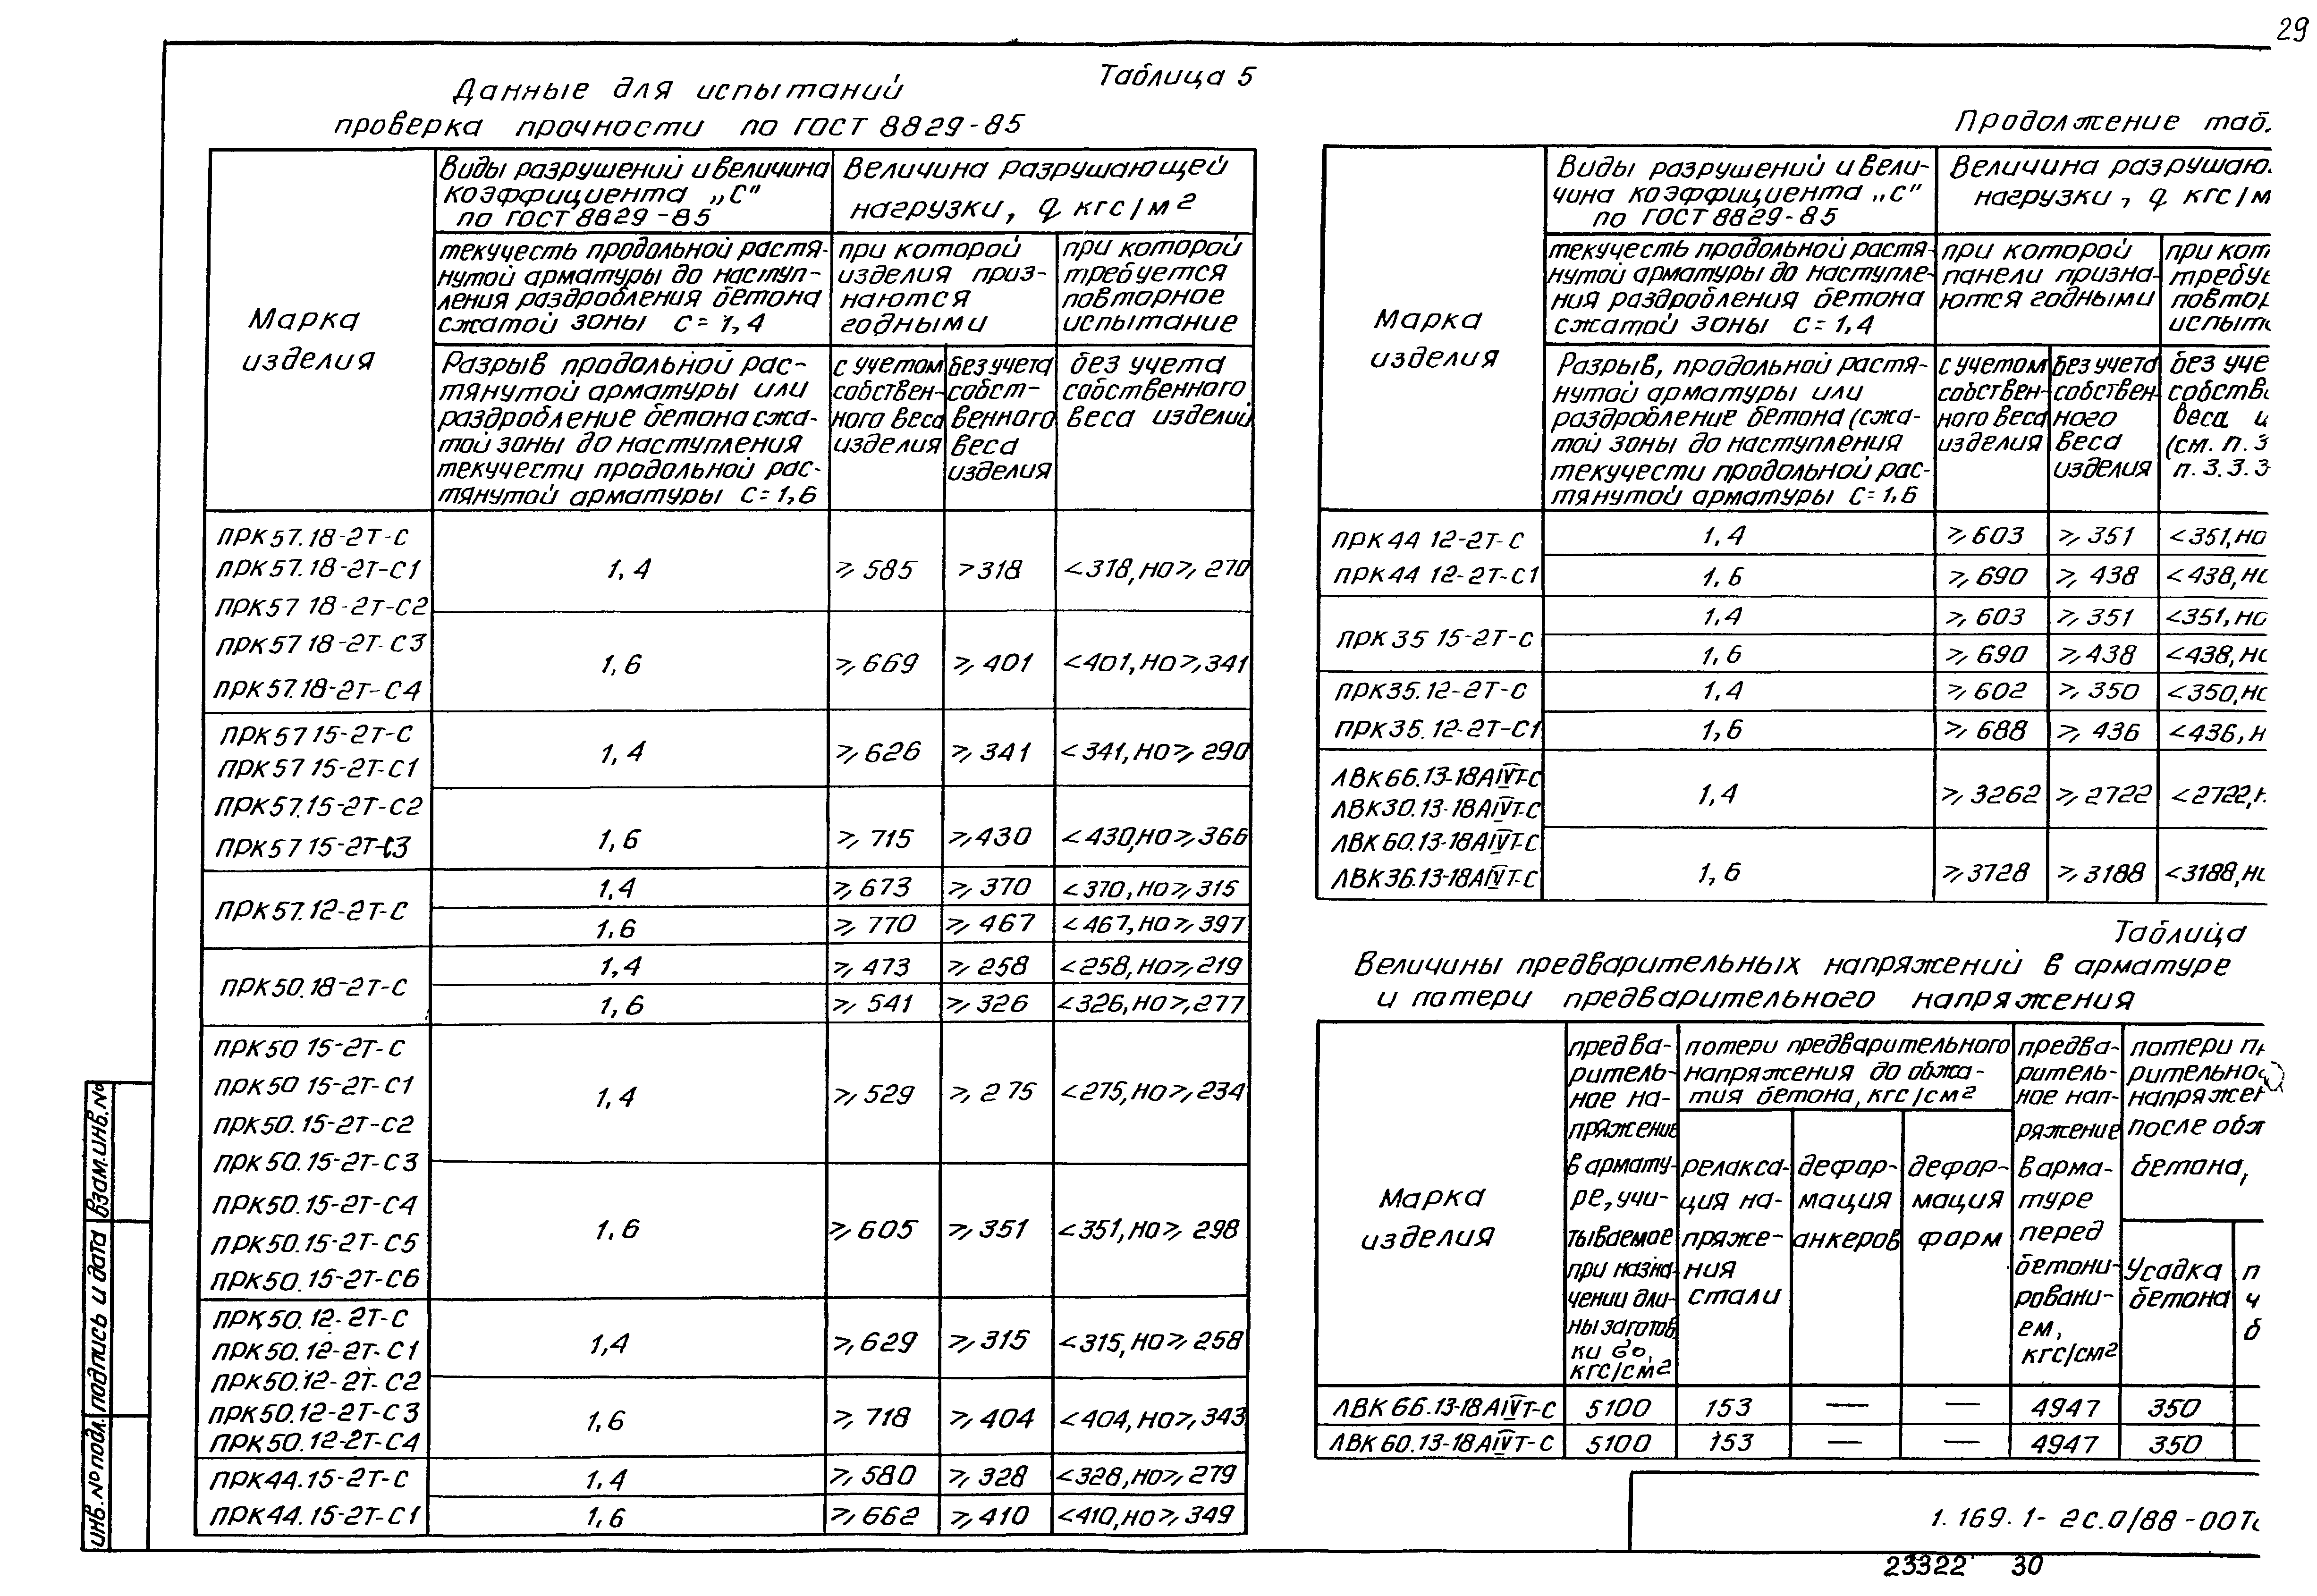 29
Данные для испытаний
Таблица 5
проверка прочности по ГОСТ 8829-85
Марка
изделия
Виды разрушений и величина
коэффициента „С"
по ГОСТ 8829-85
Величина разрушающей
нагрузки, q кгс/м2
текучесть продольной растя-
нутой арматуры до наступ-
ления раздробления бетона
сжатой зоны С=1,4
при которой
изделия приз-
наются
годными
при которой
требуется
повторное
испытание
Разрыв продольной рас-
тянутой арматуры или
раздробление бетона сжа-
той зоны до наступления
текучести продольной рас-
тянутой арматуры С=1,6
с учетом
собствен-
ного веса
изделия
без учета
собст-
венного
веса
изделия
без учета
собственного
веса изделий
ПРК57.18-2Т-С
ПРК57.18-2Т-С1
1,4 ⩾585 >318 <318,но⩾270
ПРК57 18-2Т-С2
ПРК57 18-2Т-С3
1,6 ⩾669 ⩾401 <401,но⩾341
ПРК57.18-2Т-С4
ПРК57 15-2Т-С
1,4 ⩾626 ⩾341 <341,но⩾290
ПРК57 15-2Т-С1
ПРК57.15-2Т-С2
ПРК57 15-2Т-С3 1,6 ⩾715 ⩾430 <430,но⩾366
ПРК57.12-2Т-С
1,4 ⩾673 ⩾370 <370,но⩾315
1,6 ⩾770 ⩾467 <467,но⩾397
ПРК50.18-2Т-С
1,4 ⩾473 ⩾258 <258,но⩾219
1,6 ⩾541 ⩾326 <326,но⩾277
ПРК50 15-2Т-С
ПРК50 15-2Т-С1
1,4 ⩾529 ⩾275 <275,но⩾234
ПРК50.15-2Т-С2
ПРК50.15-2Т-С3
ПРК50.15-2Т-С4
1,6 ⩾605 ⩾351 <351,но⩾298
ПРК50.15-2Т-С5
ПРК50.15-2Т-С6
ПРК50.12-2Т-С
1,4 ⩾629 ⩾315 <315,но⩾258
ПРК50.12-2Т-С1
ПРК50.12-2Т-С2
ПРК50.12-2Т-С3 1,6 ⩾718 ⩾404 <404,но⩾343
ПРК50.12-2Т-С4
ПРК44.15-2Т-С 1,4 ⩾580 ⩾328 <328,но⩾279
ПРК44.15-2Т-С1 1,6 ⩾662 ⩾410 <410,но⩾349
Продолжение таб.
Марка
изделия
Виды разрушений и вели-
чина коэффициента „С"
по ГОСТ 8829-85
Величина разрушаю
нагрузки, q кгс/м
текучесть продольной растя-
нутой арматуры до наступле-
ния раздробления бетона
сжатой зоны С=1,4
при которой
панели призна-
ются годными
при кот
требуе
повтор
испыт
Разрыв, продольной растя-
нутой арматуры или
раздробление бетона (сжа-
той зоны до наступления
текучести продольной рас-
тянутой арматуры С=1,6
с учетом
собствен-
ного веса
изделия
без учета
собствен-
ного
веса
изделия
без уче
собстве
веса и
(см. п. 3
п. 3.3.3
ПРК44 12-2Т-С 1,4 ⩾603 ⩾351 <351,но
ПРК44 12-2Т-С1 1,6 ⩾690 ⩾438 <438,но
ПРК35 15-2Т-С
1,4 ⩾603 ⩾351 <351,но
1,6 ⩾690 ⩾438 <438,но
ПРК35.12-2Т-С 1,4 ⩾602 ⩾350 <350,но
ПРК35.12-2Т-С1 1,6 ⩾688 ⩾436 <436,н
ЛВК66.13-18АIVТ-С
ЛВК30.13-18АIVТ-С
1,4 ⩾3262 ⩾2722 <2722,н
ЛВК60.13-18АIVТ-С
ЛВК36.13-18АIVТ-С 1,6 ⩾3728 ⩾3188 <3188,но
Таблица
Величины предварительных напряжений в арматуре
и потери предварительного напряжения
Марка
изделия
предва-
ритель-
ное на-
пряжение
в армату-
ре, учи-
тываемое
при назна-
чении дли-
ны заготов
ки бо,
кгс/см2
потери предварительного
напряжения до обжа-
тия бетона, кгс/см2
релакса-
ция на-
пряже-
ния
стали
дефор-
мация
анкеров
дефор-
мация
форм
предва-
ритель-
ное нап-
ряжение
в арма-
туре
перед
бетони-
ровани-
ем,
кгс/см2
потери пр
рительно
напряжен
после обж
бетона,
Усадка
бетона
п
ч
б
ЛВК66.13-18АIVТ-С 5100 153 — — 4947 350
ЛВК60.13-18АIVТ-С 5100 153 — — 4947 350
1.169.1-2с.0/88-00Т
23322 30
Взам.инв.№
Подпись и дата
Инв.№ подл.